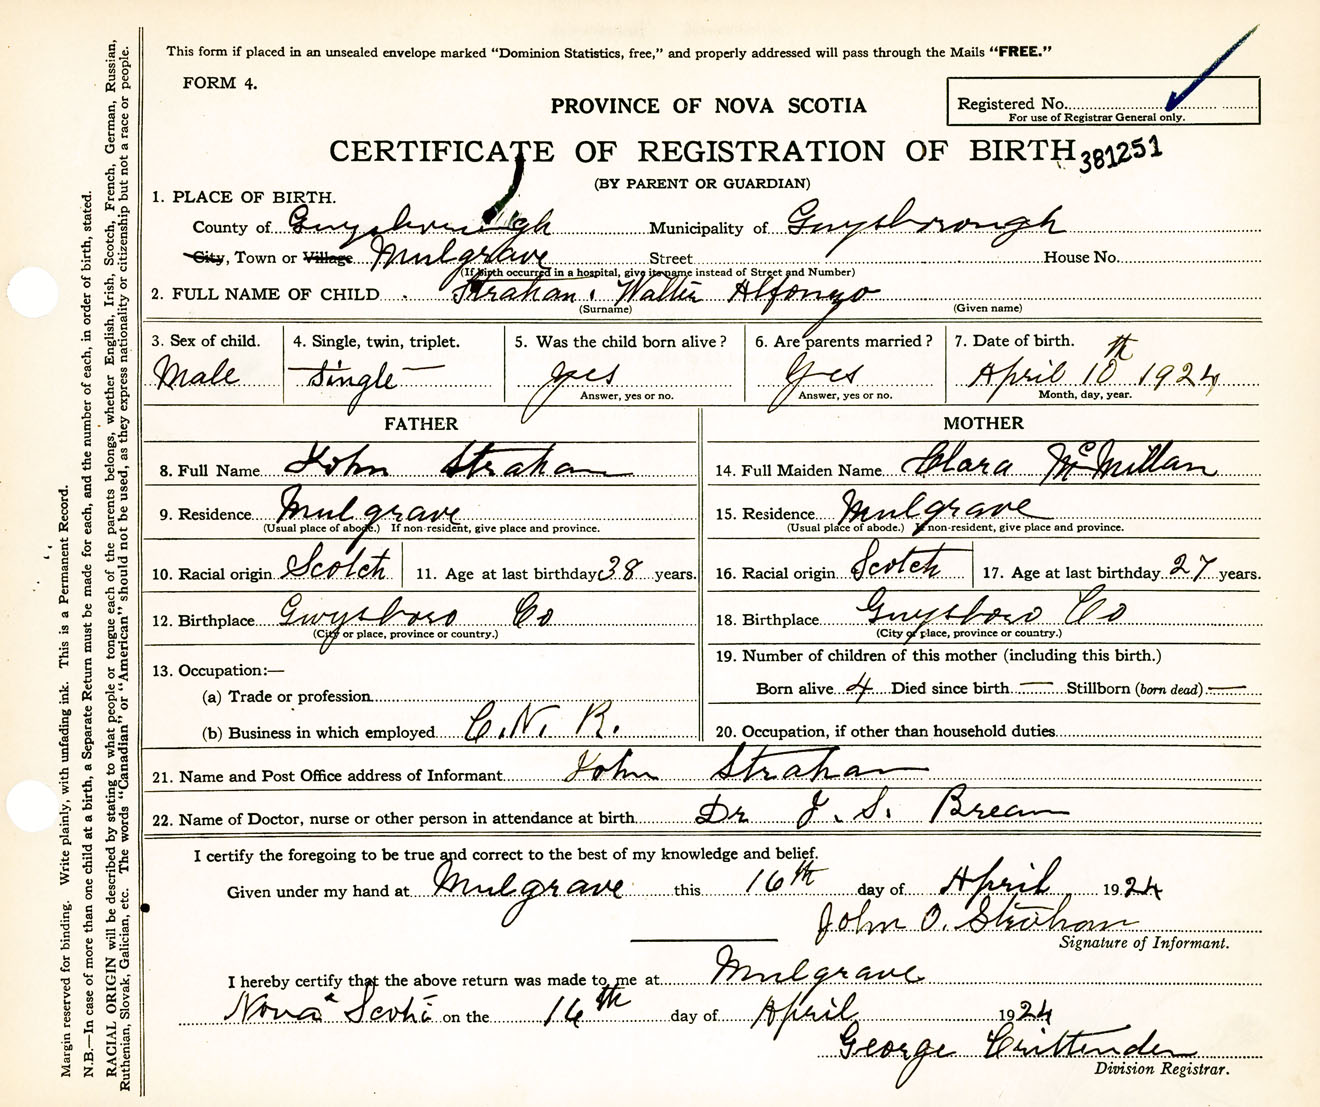 This form if placed in an unsealed envelope marked "Dominion Statistics, free," and properly addressed will pass through the Mails "FREE."
FORM 4.
Registered No.
For use of Registrar General only.
PROVINCE OF NOVA SCOTIA
CERTIFICATE OF REGISTRATION OF BIRTH 381251
(BY PARENT OR GUARDIAN)
1. PLACE OF BIRTH.
County of Guysborough Municipality of Guysborough
City, Town or Village Mulgrave Street House No.
(If birth occurred in a hospital, give its name instead of Street and Number)
2. FULL NAME OF CHILD Strahan, Walter Alfonzo
(Surname) (Given name)
3. Sex of child. 4. Single, twin, triplet. 5. Was the child born alive? 6. Are parents married? 7. Date of birth.
Male Single yes Yes April 10th 1924
Answer, yes or no. Answer, yes or no. Month, day, year.
FATHER
8. Full Name John Strahan
9. Residence Mulgrave
(Usual place of abode.) If non-resident, give place and province.
10. Racial origin Scotch 11. Age at last birthday 38 years.
12. Birthplace Guysboro Co
(City or place, province or country.)
13. Occupation:—
(a) Trade or profession
(b) Business in which employed C. N. R.
MOTHER
14. Full Maiden Name Clara McMillan
15. Residence Mulgrave
(Usual place of abode.) If non-resident, give place and province.
16. Racial origin Scotch 17. Age at last birthday 27 years.
18. Birthplace Guysboro Co
(City or place, province or country.)
19. Number of children of this mother (including this birth.)
Born alive 4 Died since birth — Stillborn (born dead) —
20. Occupation, if other than household duties
21. Name and Post Office address of Informant John Strahan
22. Name of Doctor, nurse or other person in attendance at birth Dr J. S. Brean
I certify the foregoing to be true and correct to the best of my knowledge and belief.
Given under my hand at Mulgrave this 16th day of April 1924
John O. Strahan
Signature of Informant.
I hereby certify that the above return was made to me at Mulgrave
Nova Scotia on the 16th day of April 1924
George Crittenden
Division Registrar.
Margin reserved for binding. Write plainly, with unfading ink. This is a Permanent Record.
N.B.—In case of more than one child at a birth, a Separate Return must be made for each, and the number of each, in order of birth, stated.
RACIAL ORIGIN will be described by stating to what people or tongue each of the parents belongs, whether English, Irish, Scotch, French, German, Russian,
Ruthenian, Slovak, Galician, etc. The words "Canadian" or "American" should not be used, as they express nationality or citizenship but not a race or people.